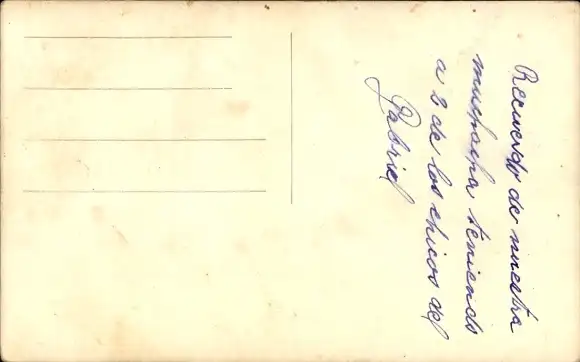 Recuerdo de nuestra
muchacha teniendo
a 2 de los chicos del
Gabriel